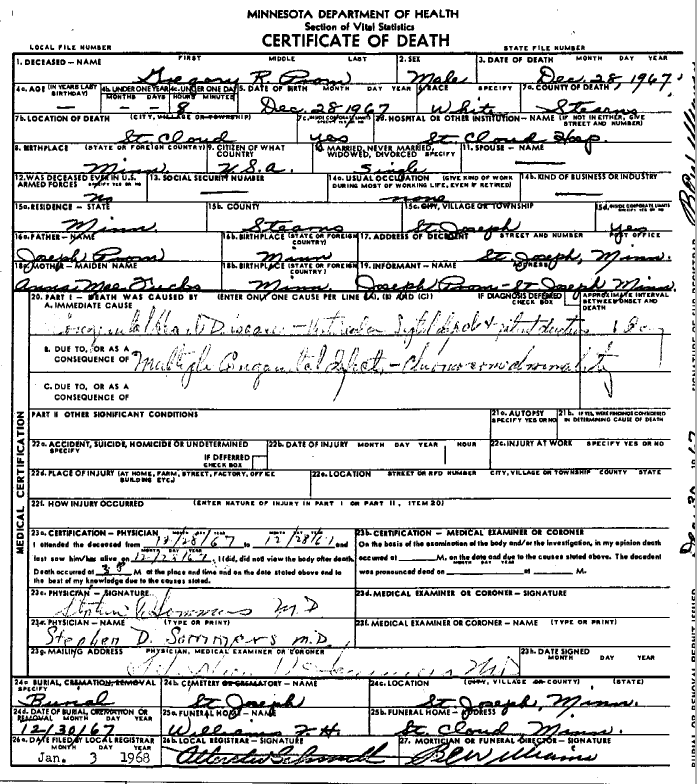 MINNESOTA DEPARTMENT OF HEALTH
Section of Vital Statistics
CERTIFICATE OF DEATH
LOCAL FILE NUMBER STATE FILE NUMBER
1. DECEASED – NAME FIRST MIDDLE LAST 2. SEX 3. DATE OF DEATH MONTH DAY YEAR
Gregory R. Prom Male Dec. 28, 1967
4a. AGE (IN YEARS LAST BIRTHDAY) 4b. UNDER ONE YEAR MONTHS DAYS 4c. UNDER ONE DAY HOURS MINUTES 5. DATE OF BIRTH MONTH DAY YEAR 6. RACE SPECIFY 7a. COUNTY OF DEATH
— — 8 Dec. 28 1967 White Stearns
7b. LOCATION OF DEATH (CITY, VILLAGE OR TOWNSHIP) 7c. INSIDE CORPORATE LIMITS SPECIFY YES OR NO 7d. HOSPITAL OR OTHER INSTITUTION – NAME (IF NOT IN EITHER, GIVE STREET AND NUMBER)
St. Cloud yes St. Cloud Hosp.
8. BIRTHPLACE (STATE OR FOREIGN COUNTRY) 9. CITIZEN OF WHAT COUNTRY 10. MARRIED, NEVER MARRIED, WIDOWED, DIVORCED SPECIFY 11. SPOUSE – NAME
Minn. U.S.A. Single —
12. WAS DECEASED EVER IN U.S. ARMED FORCES SPECIFY YES OR NO 13. SOCIAL SECURITY NUMBER 14a. USUAL OCCUPATION (GIVE KIND OF WORK DURING MOST OF WORKING LIFE, EVEN IF RETIRED) 14b. KIND OF BUSINESS OR INDUSTRY
no — none —
15a. RESIDENCE – STATE 15b. COUNTY 15c. CITY, VILLAGE OR TOWNSHIP 15d. INSIDE CORPORATE LIMITS SPECIFY YES OR NO
Minn. Stearns St. Joseph yes
16a. FATHER – NAME 16b. BIRTHPLACE (STATE OR FOREIGN COUNTRY) 17. ADDRESS OF DECEDENT STREET AND NUMBER POST OFFICE
Joseph Prom Minn St. Joseph, Minn.
18a. MOTHER – MAIDEN NAME 18b. BIRTHPLACE (STATE OR FOREIGN COUNTRY) 19. INFORMANT – NAME ADDRESS
Anna Mae Fuchs Minn. Joseph Prom – St. Joseph Minn.
20. PART I – DEATH WAS CAUSED BY (ENTER ONLY ONE CAUSE PER LINE (A), (B) AND (C)) IF DIAGNOSIS DEFERRED CHECK BOX APPROXIMATE INTERVAL BETWEEN ONSET AND DEATH
A. IMMEDIATE CAUSE
Congenital Heart Disease – Septal defect & patent ductus 1 day
B. DUE TO, OR AS A CONSEQUENCE OF Multiple Congenital defects –
C. DUE TO, OR AS A CONSEQUENCE OF
PART II OTHER SIGNIFICANT CONDITIONS 21a. AUTOPSY SPECIFY YES OR NO 21b. IF YES, WERE FINDINGS CONSIDERED IN DETERMINING CAUSE OF DEATH
MEDICAL CERTIFICATION
22a. ACCIDENT, SUICIDE, HOMICIDE OR UNDETERMINED SPECIFY IF DEFERRED CHECK BOX 22b. DATE OF INJURY MONTH DAY YEAR HOUR 22c. INJURY AT WORK SPECIFY YES OR NO
22d. PLACE OF INJURY (AT HOME, FARM, STREET, FACTORY, OFFICE BUILDING ETC.) 22e. LOCATION STREET OR RFD NUMBER CITY, VILLAGE OR TOWNSHIP COUNTY STATE
22f. HOW INJURY OCCURRED (ENTER NATURE OF INJURY IN PART I OR PART II, ITEM 20)
23a. CERTIFICATION – PHYSICIAN MONTH DAY YEAR MONTH DAY YEAR 23b. CERTIFICATION – MEDICAL EXAMINER OR CORONER
I attended the deceased from 12/28/67 to 12/28/67 and On the basis of the examination of the body and/or the investigation, in my opinion death
last saw him/her alive on 12/28/67. I (did, did not view the body after death. occurred at M. on the date and due to the causes stated above. The decedent
Death occurred at M. at the place and time and on the date stated above and to was pronounced dead on at M.
the best of my knowledge due to the causes stated. MONTH DAY YEAR
23c. PHYSICIAN – SIGNATURE 23d. MEDICAL EXAMINER OR CORONER – SIGNATURE
Stephen D Sommers M.D
23e. PHYSICIAN – NAME (TYPE OR PRINT) 23f. MEDICAL EXAMINER OR CORONER – NAME (TYPE OR PRINT)
Stephen D. Sommers M.D.
23g. MAILING ADDRESS PHYSICIAN, MEDICAL EXAMINER OR CORONER 23h. DATE SIGNED MONTH DAY YEAR
24a. BURIAL, CREMATION, REMOVAL SPECIFY 24b. CEMETERY OR CREMATORY – NAME 24c. LOCATION (CITY, VILLAGE OR COUNTY) (STATE)
Burial St. Joseph St. Joseph, Minn.
24d. DATE OF BURIAL, CREMATION OR REMOVAL MONTH DAY YEAR 25a. FUNERAL HOME – NAME 25b. FUNERAL HOME – ADDRESS
12/30/67 Williams F.H. St. Cloud Minn.
26a. DATE FILED BY LOCAL REGISTRAR MONTH DAY YEAR 26b. LOCAL REGISTRAR – SIGNATURE 27. MORTICIAN OR FUNERAL DIRECTOR – SIGNATURE
Jan. 3 1968 Williams